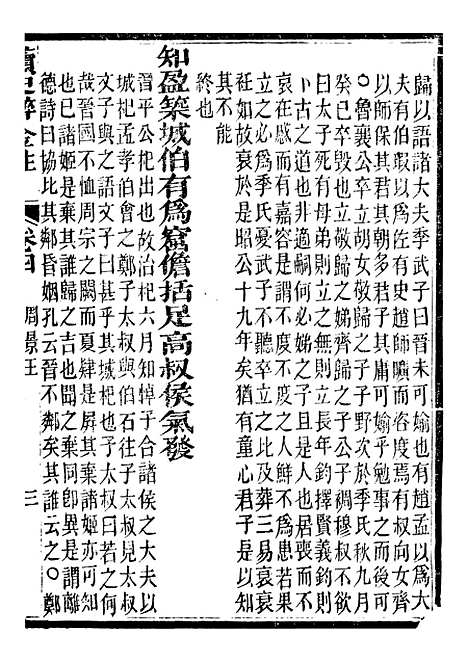 歸以語諸大夫季武子曰晉未可媮也有趙孟以爲大
夫有伯瑕以爲佐有史趙師曠而咨度焉有叔向女齊
以師保其君其朝多君子其庸可媮乎勉事之而後可
○魯襄公卒立胡女敬歸之子子野次於季氏秋九月
癸巳卒毀也立敬歸之娣齊歸之子公子禂穆叔不欲
曰太子死有母弟則立之無則立長年鈞擇賢義鈞則
卜古之道也非適嗣何必娣之子且是人也居喪而不
哀在慼而有嘉容是謂不度不度之人鮮不爲患若果
立之必爲季氏憂武子不聽卒立之比及葬三易衰衰
衽如故衰於是昭公十九年矣猶有童心君子是以知
其不能
終也
知盈築城伯有爲窟儋括足高叔侯氣發
晉平公杞出也故治杞六月知悼子合諸侯之大夫以
城杞孟孝伯會之鄭子太叔與伯石往子太叔見太叔
文子與之語文子曰甚乎其城杞也子太叔曰若之何
哉晉國不恤周宗之闕而夏肄是屏其棄諸姬亦可知
也已諸姬是棄其誰歸之吉也聞之棄同卽異是謂離
德詩曰協比其鄰昏姻孔云晉不鄰矣其誰云之○鄭
卷四
周景王
三